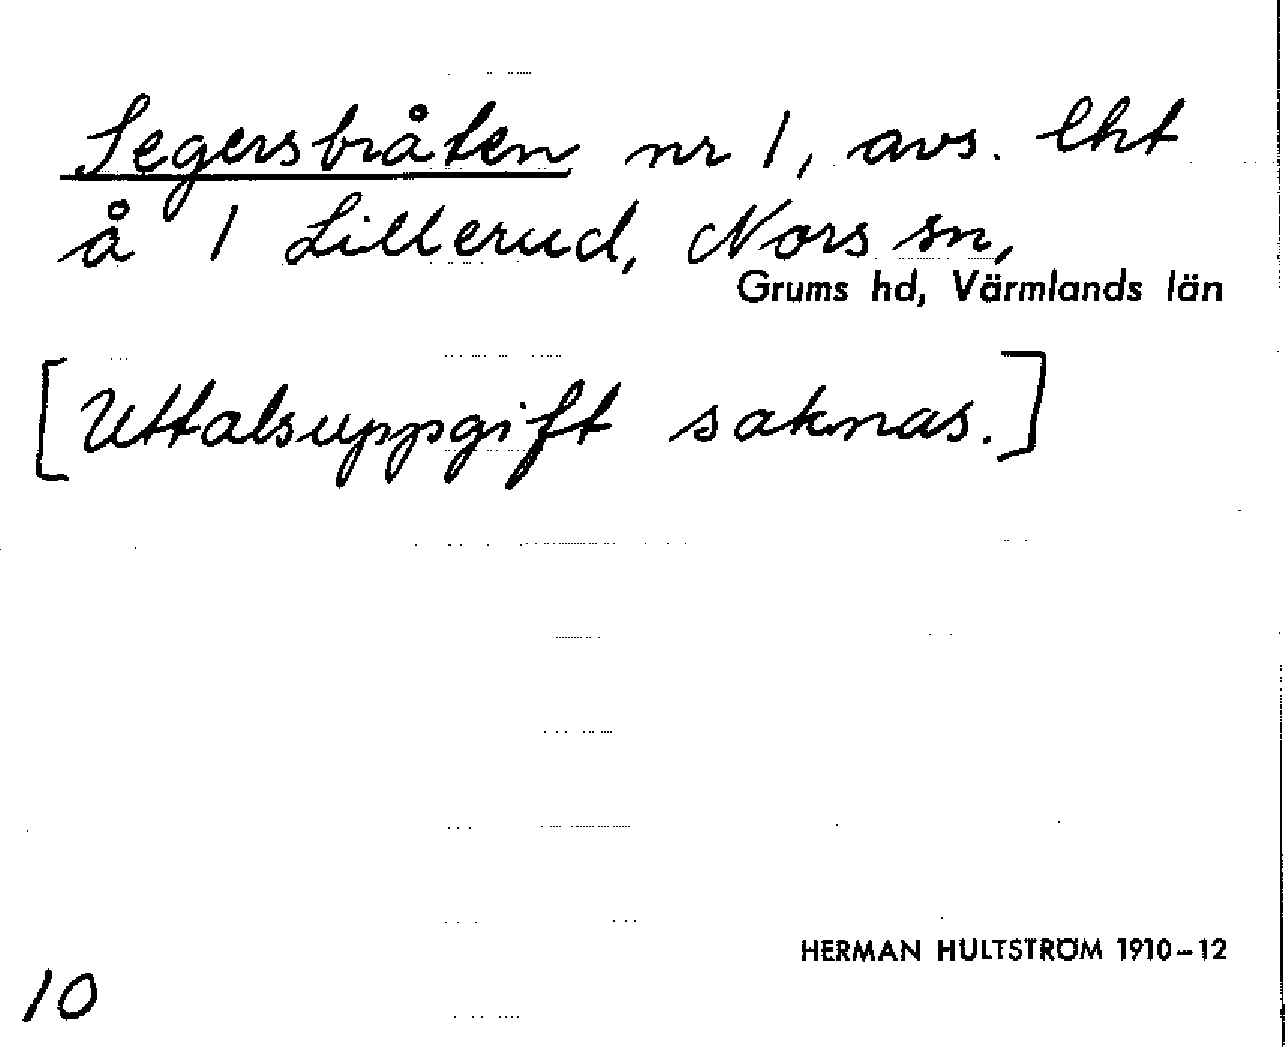 Segersbråten nr 1, avs. lht
å 1 Lillerud, Nors sn,
Grums hd, Värmlands län
[Uttalsuppgift saknas.]
HERMAN HULTSTRÖM 1910-12
10